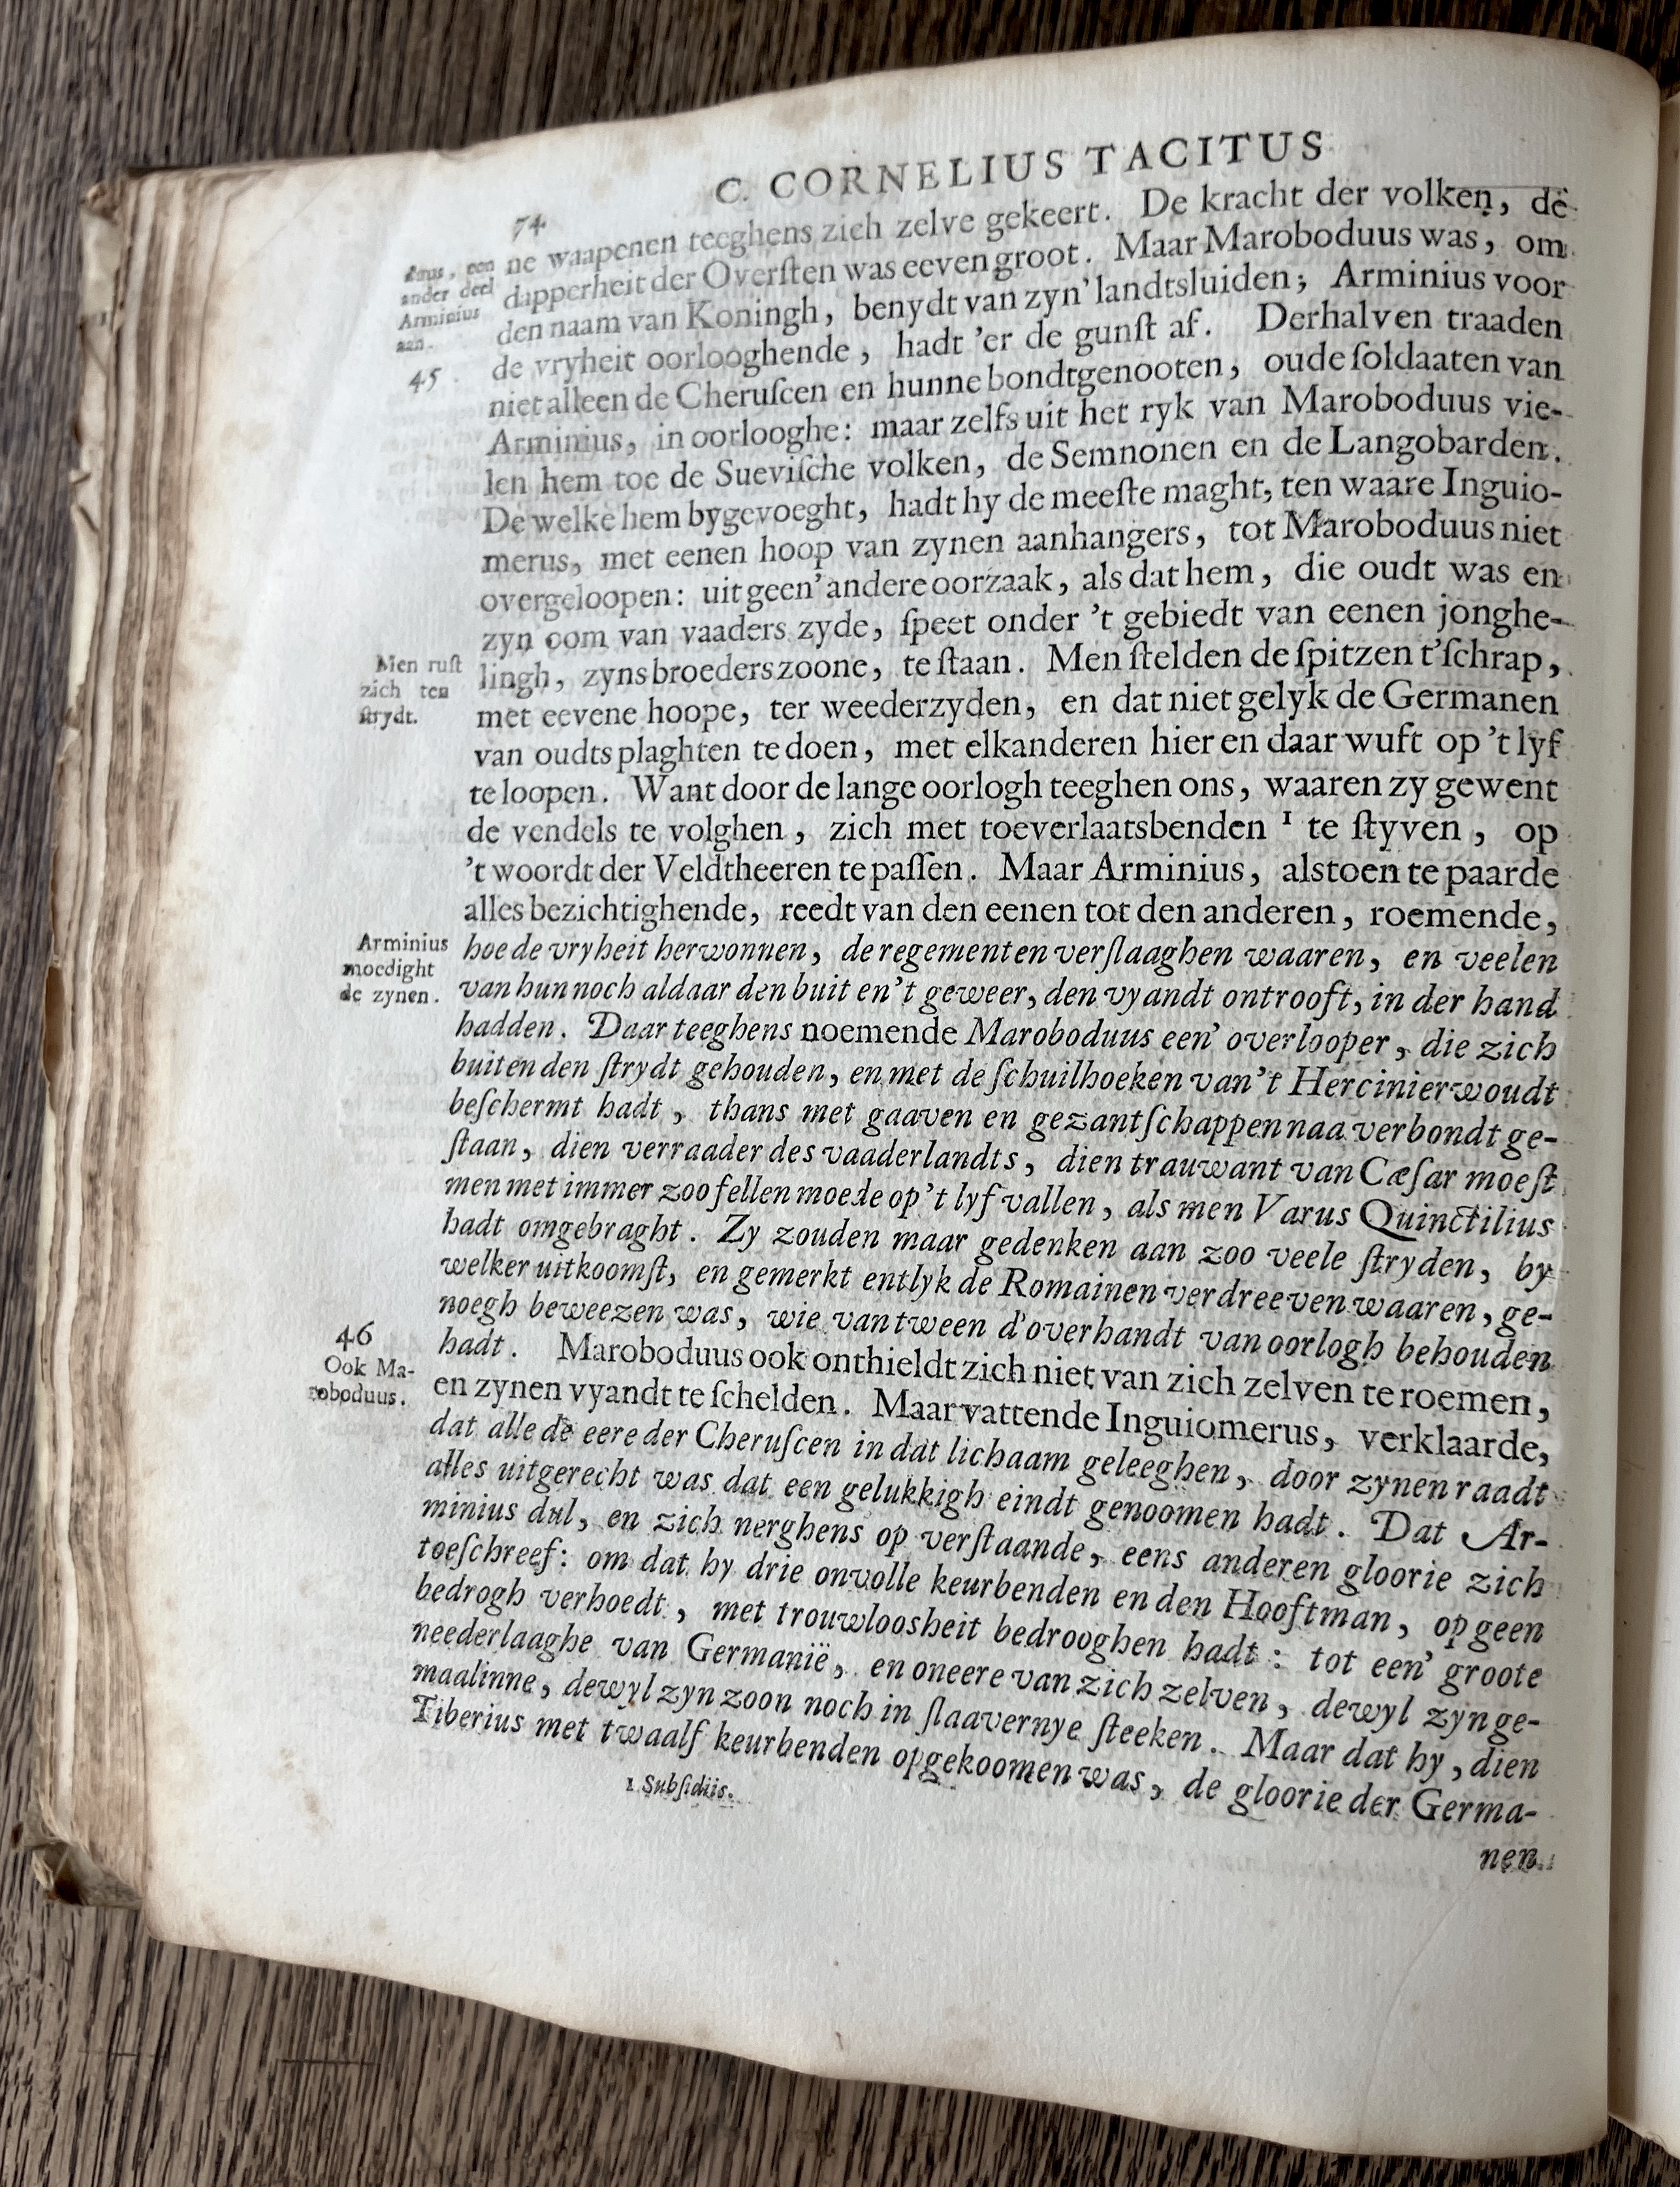 C. CORNELIUS TACITUS
74
ander deel
Arminius
aan.
45
ne waapenen teeghens zich zelve gekeert. De kracht der volken, de
dapperheit der Overſten was eeven groot. Maar Maroboduus was, om
den naam van Koningh, benydt van zyn' landtsluiden; Arminius voor
de vryheit oorlooghende, hadt 'er de gunſt af. Derhalven traaden
niet alleen de Cheruſcen en hunne bondtgenooten, oude ſoldaaten van
Arminius, in oorlooghe: maar zelfs uit het ryk van Maroboduus vie-
len hem toe de Sueviſche volken, de Semnonen en de Langobarden.
De welke hem bygevoeght, hadt hy de meeſte maght, ten waare Inguio-
merus, met eenen hoop van zynen aanhangers, tot Maroboduus niet
overgeloopen: uit geen' andere oorzaak, als dat hem, die oudt was en
zyn oom van vaaders zyde, ſpeet onder 't gebiedt van eenen jonghe-
Men ruſt
zich ten
ſtrydt.
lingh, zyns broeders zoone, te ſtaan. Men ſtelden de ſpitzen t'ſchrap,
met eevene hoope, ter weederzyden, en dat niet gelyk de Germanen
van oudts plaghten te doen, met elkanderen hier en daar wuft op 't lyf
te loopen. Want door de lange oorlogh teeghen ons, waaren zy gewent
de vendels te volghen, zich met toeverlaatsbenden 1 te ſtyven, op
't woordt der Veldtheeren te paſſen. Maar Arminius, alstoen te paarde
alles bezichtighende, reedt van den eenen tot den anderen, roemende,
Arminius
moedight
de zynen.
hoe de vryheit herwonnen, de regementen verſlaaghen waaren, en veelen
van hun noch aldaar den buit en 't geweer, den vyandt ontrooft, in der hand
hadden. Daar teeghens noemende Maroboduus een' overlooper, die zich
buiten den ſtrydt gehouden, en met de ſchuilhoeken van 't Hercinierwoudt
beſchermt hadt, thans met gaaven en gezantſchappen naa verbondt ge-
ſtaan, dien verraader des vaaderlandts, dien trauwant van Cæſar moeſt
men met immer zoo fellen moede op 't lyf vallen, als men Varus Quinctilius
hadt omgebraght. Zy zouden maar gedenken aan zoo veele ſtryden, by
welker uitkoomſt, en gemerkt entlyk de Romainen verdreeven waaren, ge-
noegh beweezen was, wie van tween d'overhandt van oorlogh behouden
46
Ook Ma-
roboduus.
hadt. Maroboduus ook onthieldt zich niet van zich zelven te roemen,
en zynen vyandt te ſchelden. Maar vattende Inguiomerus, verklaarde,
dat alle de eere der Cheruſcen in dat lichaam geleeghen, door zynen raadt
alles uitgerecht was dat een gelukkigh eindt genoomen hadt. Dat Ar-
minius dul, en zich nerghens op verſtaande, eens anderen gloorie zich
toeſchreef: om dat hy drie onvolle keurbenden en den Hooftman, op geen
bedrogh verhoedt, met trouwloosheit bedrooghen hadt: tot een' groote
neederlaaghe van Germanië, en oneere van zich zelven, dewyl zyn ge-
maalinne, dewyl zyn zoon noch in ſlaavernye ſteeken. Maar dat hy, dien
Tiberius met twaalf keurbenden opgekoomen was, de gloorie der Germa-
1 Subſidiis.
nen